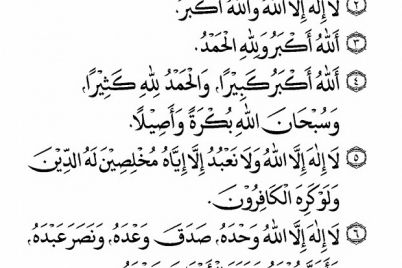 ٢ لَا إِلٰهَ إِلَّا اللهُ وَاللهُ أَكْبَرُ.
٣ اَللهُ أَكْبَرُ وَلِلّٰهِ الْحَمْدُ.
٤ اَللهُ أَكْبَرُ كَبِيْرًا، وَالْحَمْدُ لِلّٰهِ كَثِيْرًا،
وَسُبْحَانَ اللهِ بُكْرَةً وَأَصِيْلًا.
٥ لَا إِلٰهَ إِلَّا اللهُ وَلَا نَعْبُدُ إِلَّا إِيَّاهُ مُخْلِصِيْنَ لَهُ الدِّيْنَ
وَلَوْ كَرِهَ الْكَافِرُوْنَ.
٦ لَا إِلٰهَ إِلَّا اللهُ وَحْدَهُ، صَدَقَ وَعْدَهُ، وَنَصَرَ عَبْدَهُ،